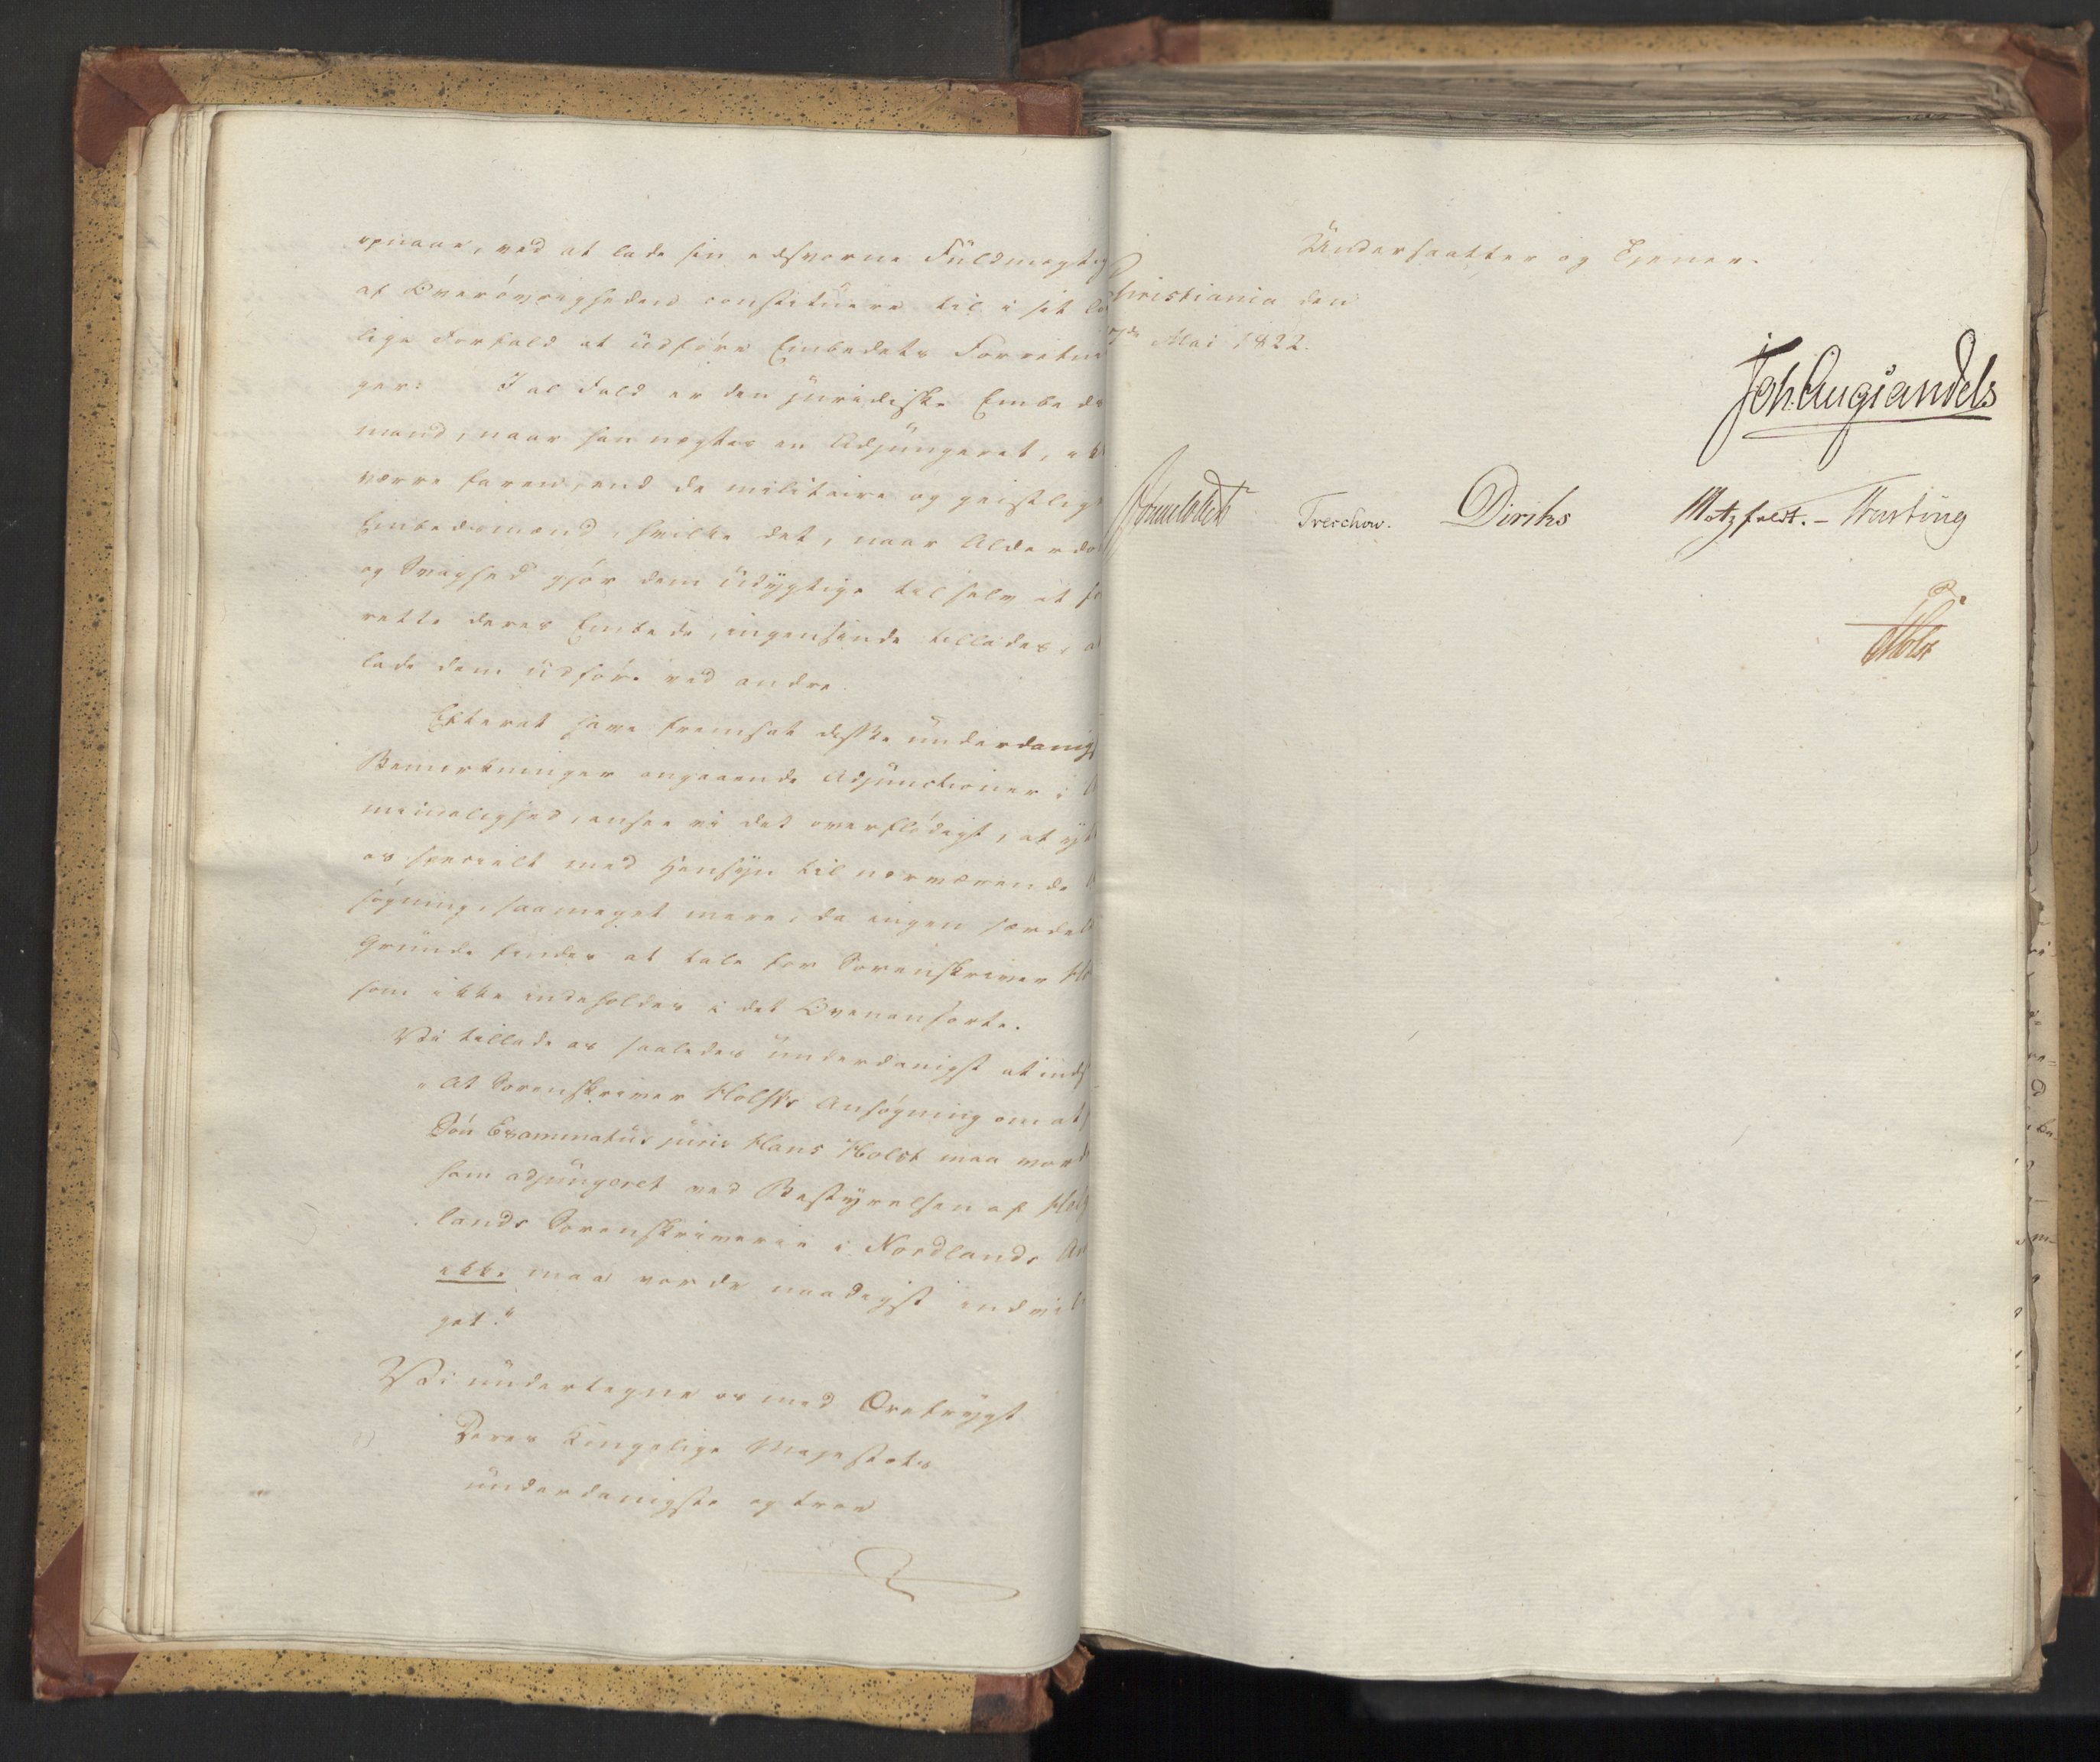 opnaae, ved at lade sin edsvorne Fuldmægtig
af Overøvrigheden constituere til i sit
lige Forfald at udføre Embedets Forretnin
ger: I al Fald er den juridiske Embeds
mand, naar han nægtes en Adjungeret, ikk
værre faren, end de militaire og geistlige
Embedsmænd, hvilke det, naar Alderdo
og Svaghed gjør dem udygtige til selv at fo
rette deres Embede, ingensinde tillades, at
lade dem udføre ved andre.
Efterat have fremsat disse underdanigs
Bemærkninger angaaende Adjunctioner i A
mindelighed, ansee vi det overflødigt, at yt
os specielt med Hensyn til nærværende
søgning, saameget mere, da ingen særdel
Grunde findes at tale for Sorenskriver Ho
som ikke indeholdes i det Ovenanførte.
Vi tillade os saaledes underdanigst at inds
"At Sorenskriver Holsts Ansøgning om at
Søn Examinatus juris Hans Holst maa vorde
ham adjungeret ved Bestyrelsen af Helge
lands Sorenskriverie i Nordlands Am
ikke maa vorde naadigst indvil
get."
Vi undertegne os med Ærefrygt
Deres Kongelige Majestæts
underdanigste og troe
Undersaatter og Tjenere.
Christiania den
Mai 1822.
Joh. Aug. Sandels
Sommerfeldt Treschow. Diriks Motzfeldt. – Fasting
Holst